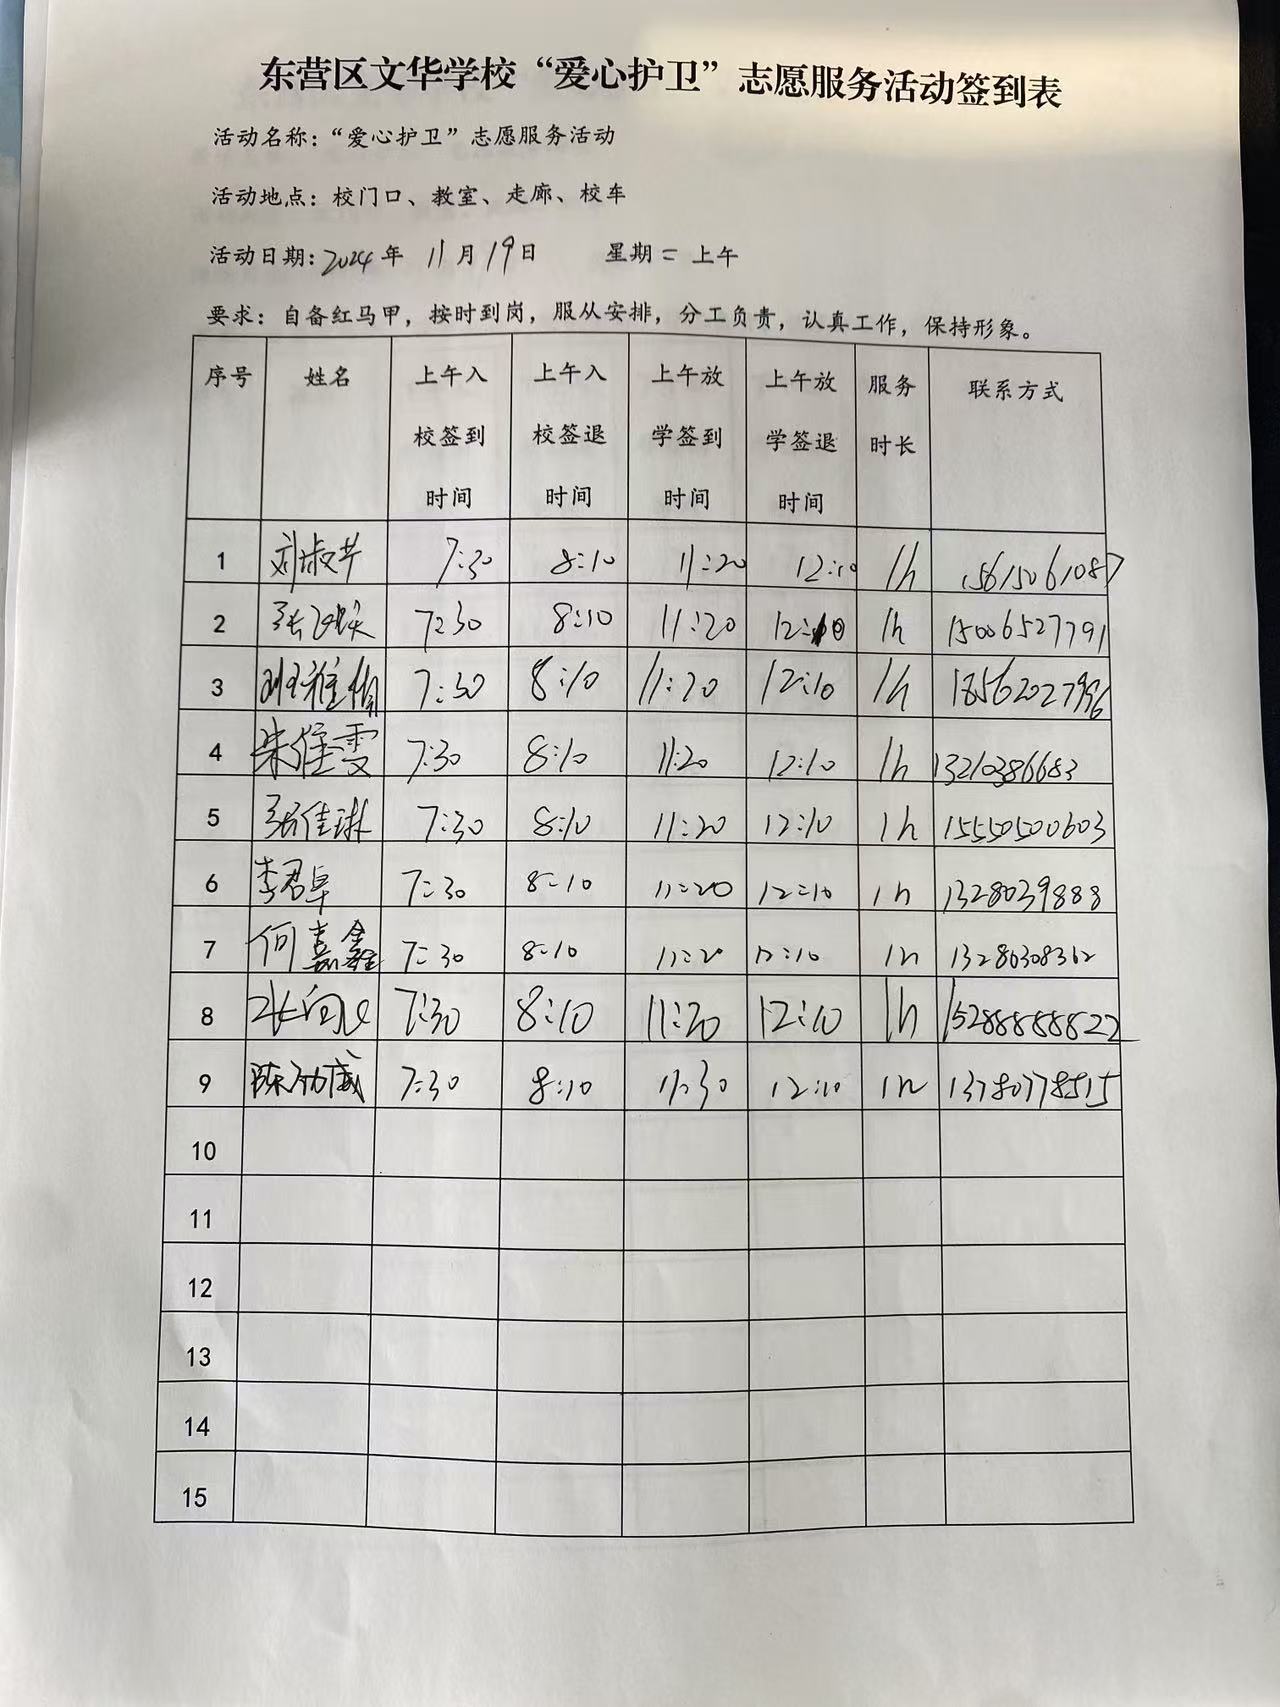 东营区文华学校“爱心护卫”志愿服务活动签到表
活动名称：“爱心护卫”志愿服务活动
活动地点：校门口、教室、走廊、校车
活动日期：2024年 11月19日 星期二 上午
要求：自备红马甲，按时到岗，服从安排，分工负责，认真工作，保持形象。
序号 姓名 上午入校签到时间 上午入校签退时间 上午放学签到时间 上午放学签退时间 服务时长 联系方式
1 刘淑芹 7:30 8:10 11:20 12:10 1h 15615061087
2 7:30 8:10 11:20 12:10 1h 15006527791
3 7:30 8:10 11:20 12:10 1h 18562027996
4 朱佳雯 7:30 8:10 11:20 12:10 1h 13210386683
5 张佳琳 7:30 8:10 11:20 12:10 1h 15550500603
6 李君卓 7:30 8:10 11:20 12:10 1h 1328039888
7 何嘉鑫 7:30 8:10 11:20 12:10 1h 13280308362
8 7:30 8:10 11:20 12:10 1h 15288888822
9 7:30 8:10 11:30 12:10 1h 13780778515
10
11
12
13
14
15